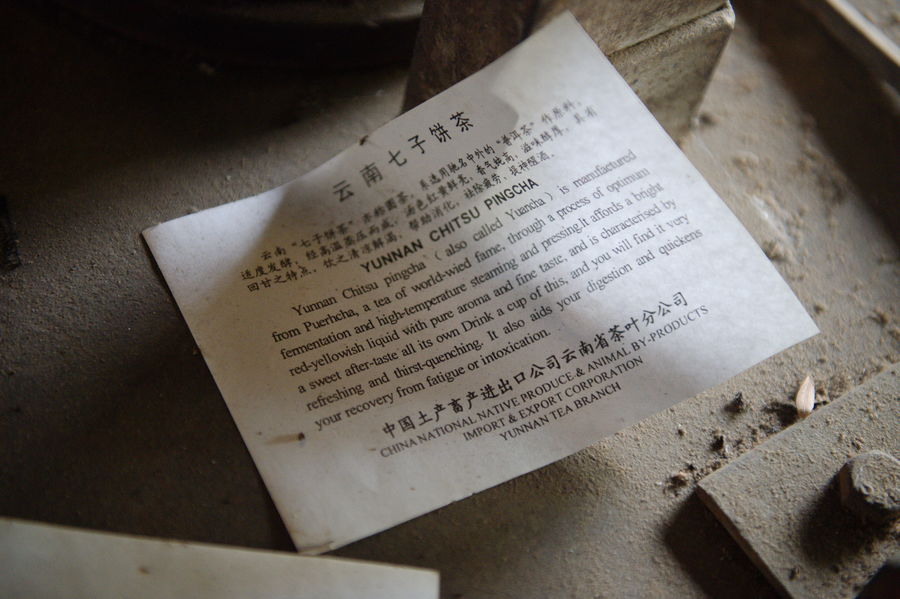 云南七子饼茶
云南“七子饼茶”亦称圆茶，系选用驰名中外的“普洱茶”作原料，
适度发酵，经高温蒸压而成，汤色红黄鲜亮，香气纯高，滋味醇厚，具有
回甘之特点，饮之清凉解渴，帮助消化，祛除疲劳，提神醒酒。
YUNNAN CHITSU PINGCHA
Yunnan Chitsu pingcha ( also called Yuancha ) is manufactured
from Puerhcha, a tea of world-wied fame, through a process of optimum
fermentation and high-temperature steaming and pressing.It affords a bright
red-yellowish liquid with pure aroma and fine taste, and is characterised by
a sweet after-taste all its own Drink a cup of this, and you will find it very
refreshing and thirst-quenching. It also aids your digestion and quickens
your recovery from fatigue or intoxication.
中国土产畜产进出口公司云南省茶叶分公司
CHINA NATIONAL NATIVE PRODUCE & ANIMAL BY-PRODUCTS
IMPORT & EXPORT CORPORATION
YUNNAN TEA BRANCH